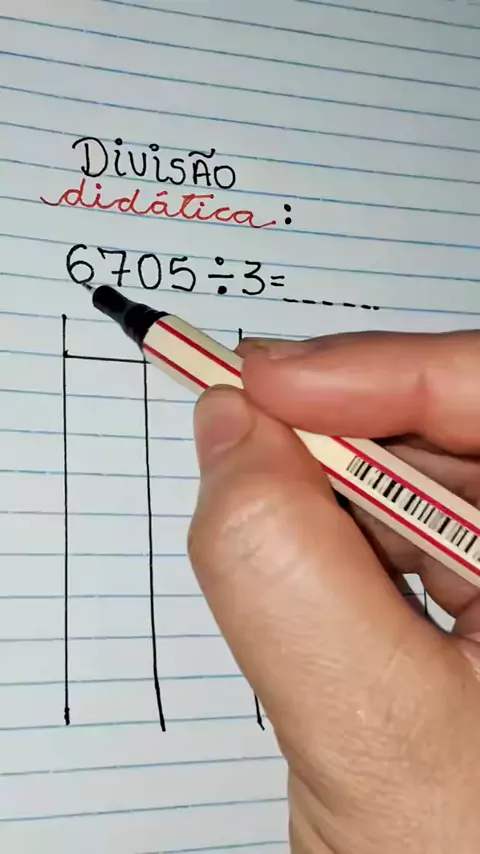 Divisão
didática:
6705÷3=_____